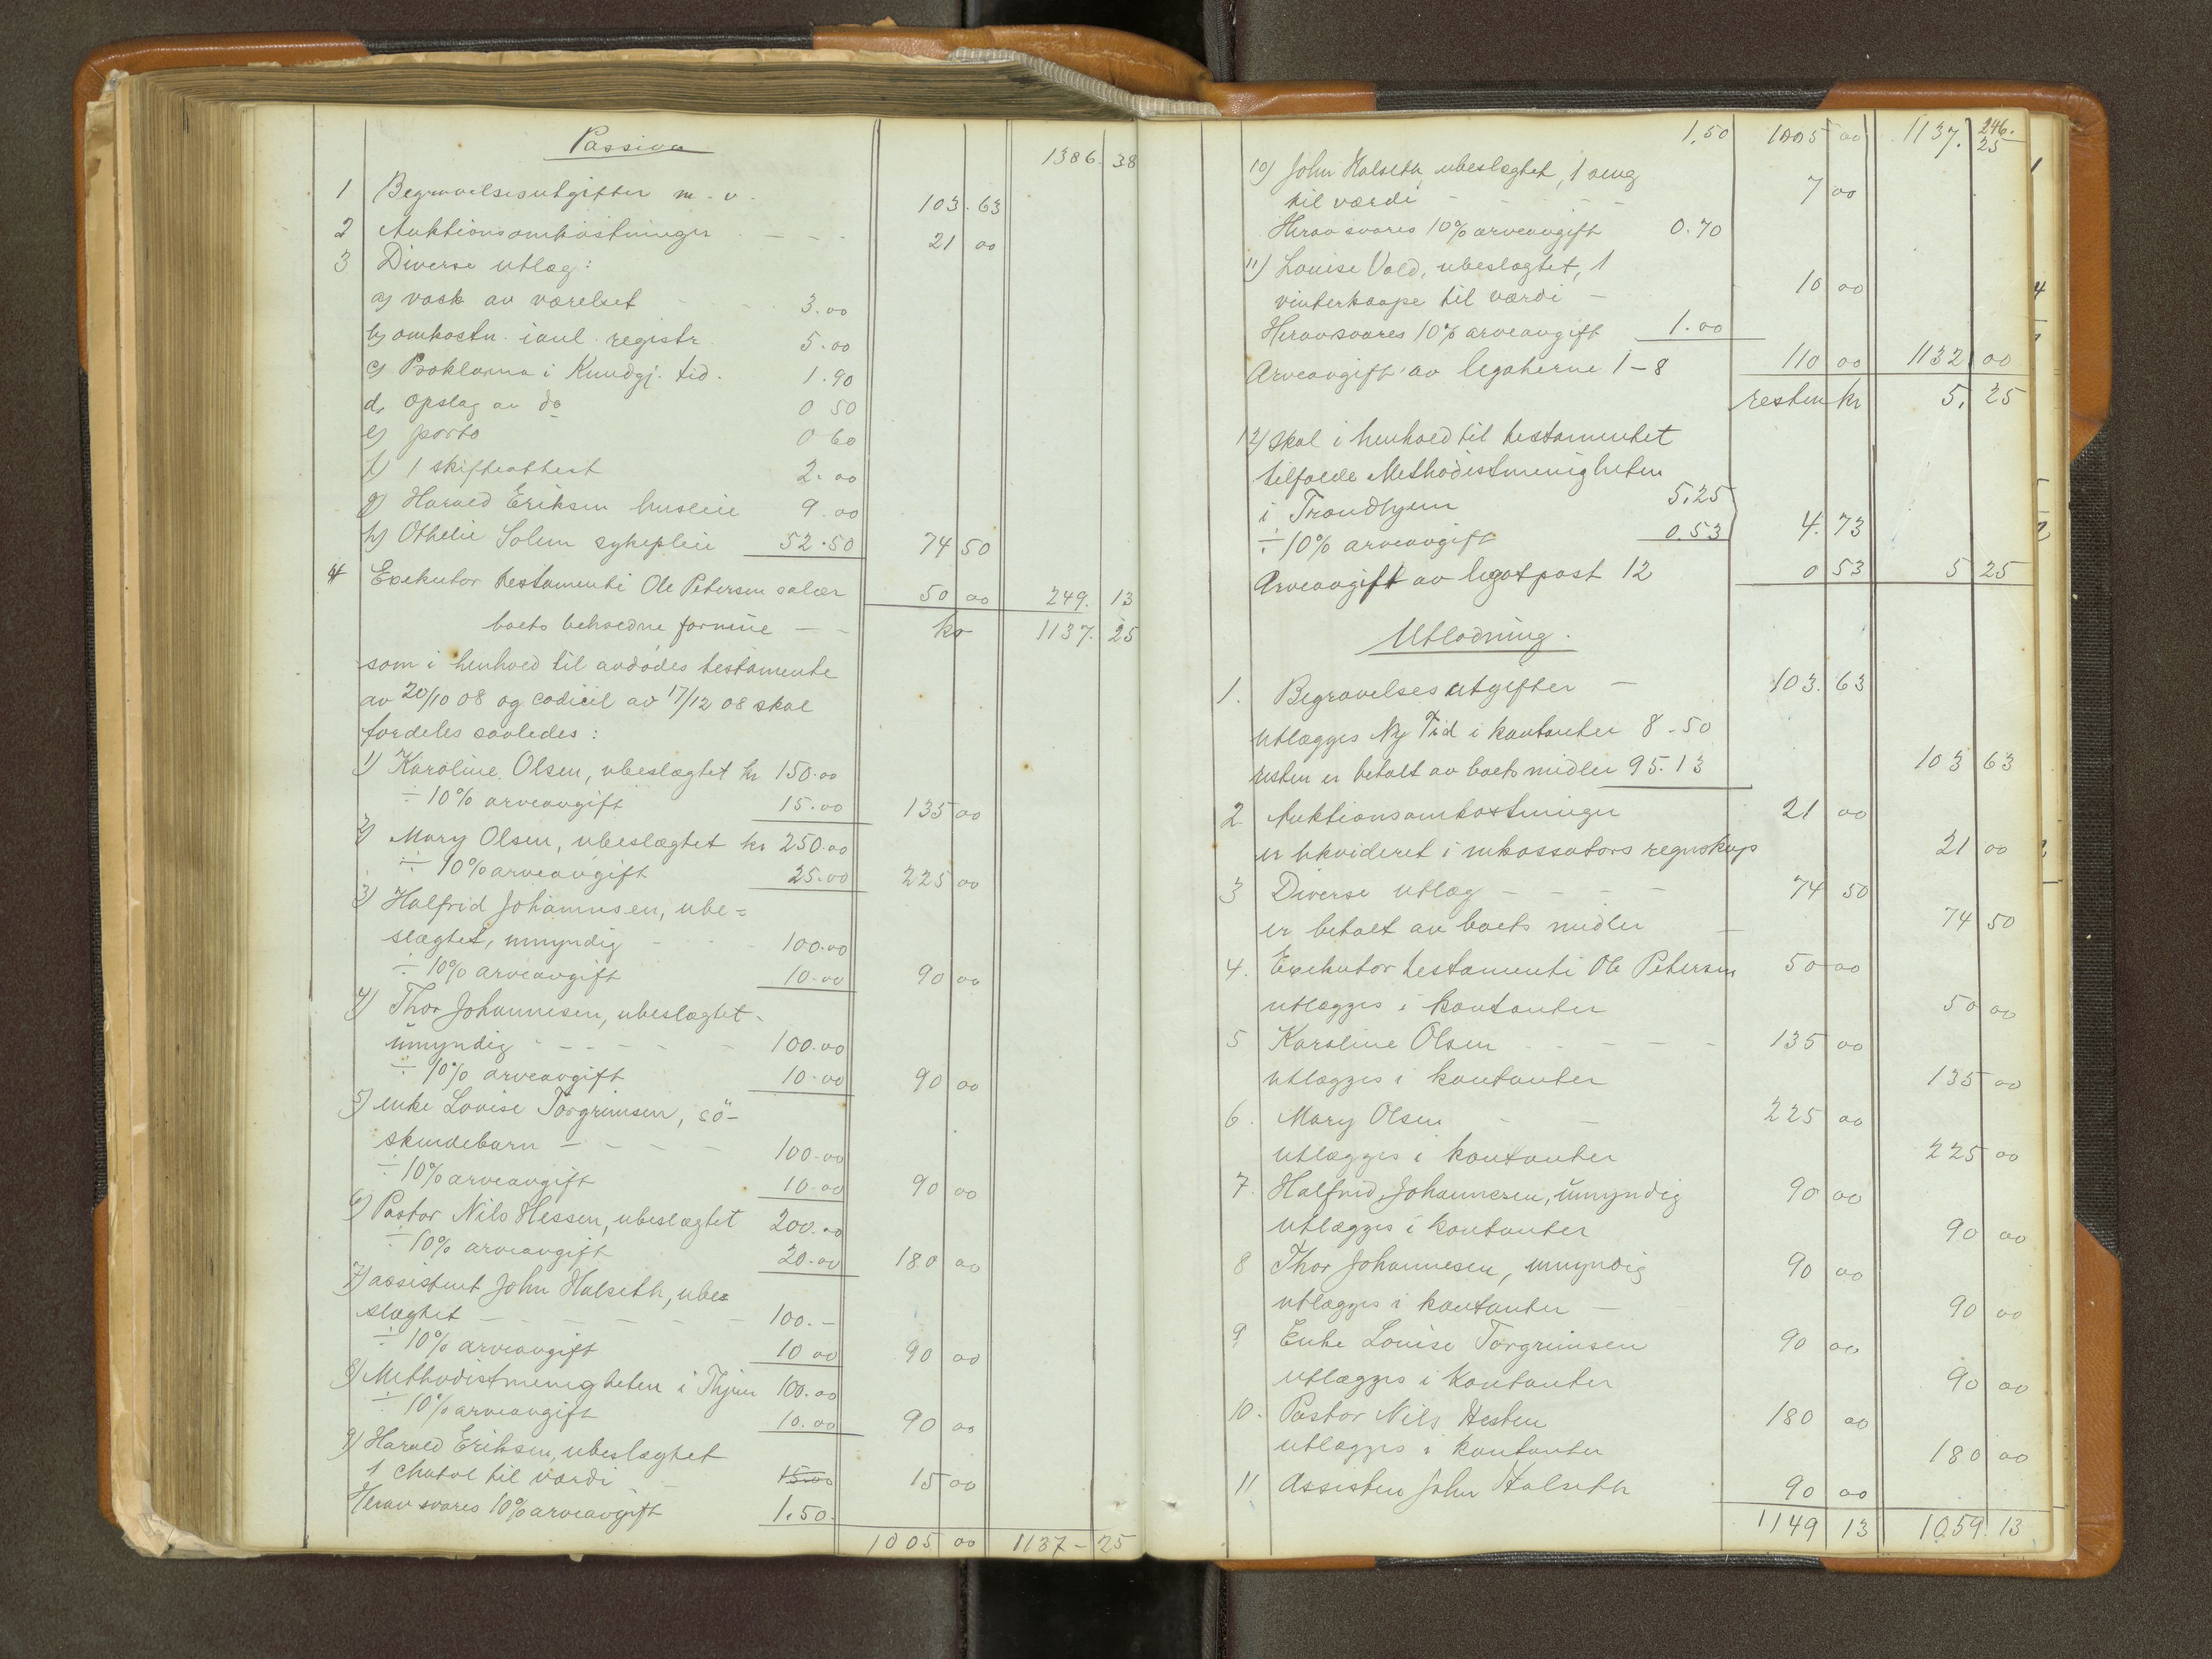 Passiva
1386. 38
1 Begravelsesutgifter m. v. 103. 63
2 Auktionsomkostninger - - - 21 00
3 Diverse utlæg:
a) vask av værelset - - 3.00
b) omkostn. anl. registr. 5.00
c) Proklama i Kundgj. tid. 1.90
d, opslag av do 0 50
e) porto 0 60
f) 1 skifteattest 2.00
g) Harald Eriksen husleie 9.00
h) Othelie Solem sykepleie 52.50 74 50
4 Exekutor testamenti Ole Petersen salær 50 00 249. 13
boets beholdne formue - - kr 1137. 25
som i henhold til avdødes testamente
av 20/10 08 og codicil av 17/12 08 skal
fordeles saaledes:
1) Karoline Olsen, ubeslægtet kr 150.00
÷ 10% arveavgift 15.00 135 00
2) Mary Olsen, ubeslægtet kr 250.00
÷ 10% arveavgift 25.00 225 00
3) Halfrid Johannesen, ube=
slægtet, umyndig - - 100.00
÷ 10% arveavgift 10.00 90 00
4) Thor Johannesen, ubeslægtet -
umyndig - - - - - 100.00
÷ 10% arveavgift 10.00 90 00
5) enke Lovise Torgrimsen, sö-
skendebarn - - - - 100.00
÷ 10% arveavgift 10.00 90 00
6) Pastor Nils Hessen, ubeslægtet 200.00
÷ 10% arveavgift 20.00 180 00
7) assistent John Halseth, ube=
slægtet - - - - - - 100.-
÷ 10% arveavgift 10 00 90 00
8) Methodistmenigheten i Thjem 100.00
÷ 10% arveavgift 10.00 90 00
9) Harald Eriksen, ubeslægtet
1 chatol til værdi - - 15.00 15 00
Herav svares 10% arveavgift 1.50.
1005 00 1137- 25
1.50 1005 00 1137. 246. 25
10) John Halseth, ubeslægtet, 1 seng
til værdi - - - - 7 00
Herav svares 10% arveavgift 0.70
11) Louise Vold, ubeslægtet, 1
vinterkaape til værdi - 10 00
Herav svares 10% arveavgift 1.00
Arveavgift av legaterne 1-8 110 00 1132 00
resten kr 5. 25
12) skal i henhold til testamentet
tilfalde Methodistmenigheten
i Trondhjem 5.25
÷ 10% arveavgift 0.53 4. 73
Arveavgift av legatpost 12 0 53 5 25
Utlodning.
1. Begravelsesutgifter - 103. 63
utlægges Ny Tid i kontanter 8.50
resten er betalt av boets midler 95.13 103 63
2 Auktionsomkostninger 21 00
er likvideret i inkassators regnskap 21 00
3 Diverse utlæg - - - - 74 50
er betalt av boets midler - 74 50
4. Exekutor testamenti Ole Petersen 50 00
utlægges i kontanter 50 00
5 Karoline Olsen - - - - - 135 00
utlægges i kontanter 135 00
6. Mary Olsen - - 225 00
utlægges i kontanter 225 00
7. Halfrid Johannesen, umyndig 90 00
utlægges i kontanter 90 00
8 Thor Johannesen, umyndig 90 00
utlægges i kontanter - 90 00
9 Enke Louise Torgrimsen 90 00
utlægges i kontanter 90 00
10. Pastor Nils Hesten 180 00
utlægges i kontanter 180 00
11 Assisten John Halseth 90 00
1149 13 1059. 13